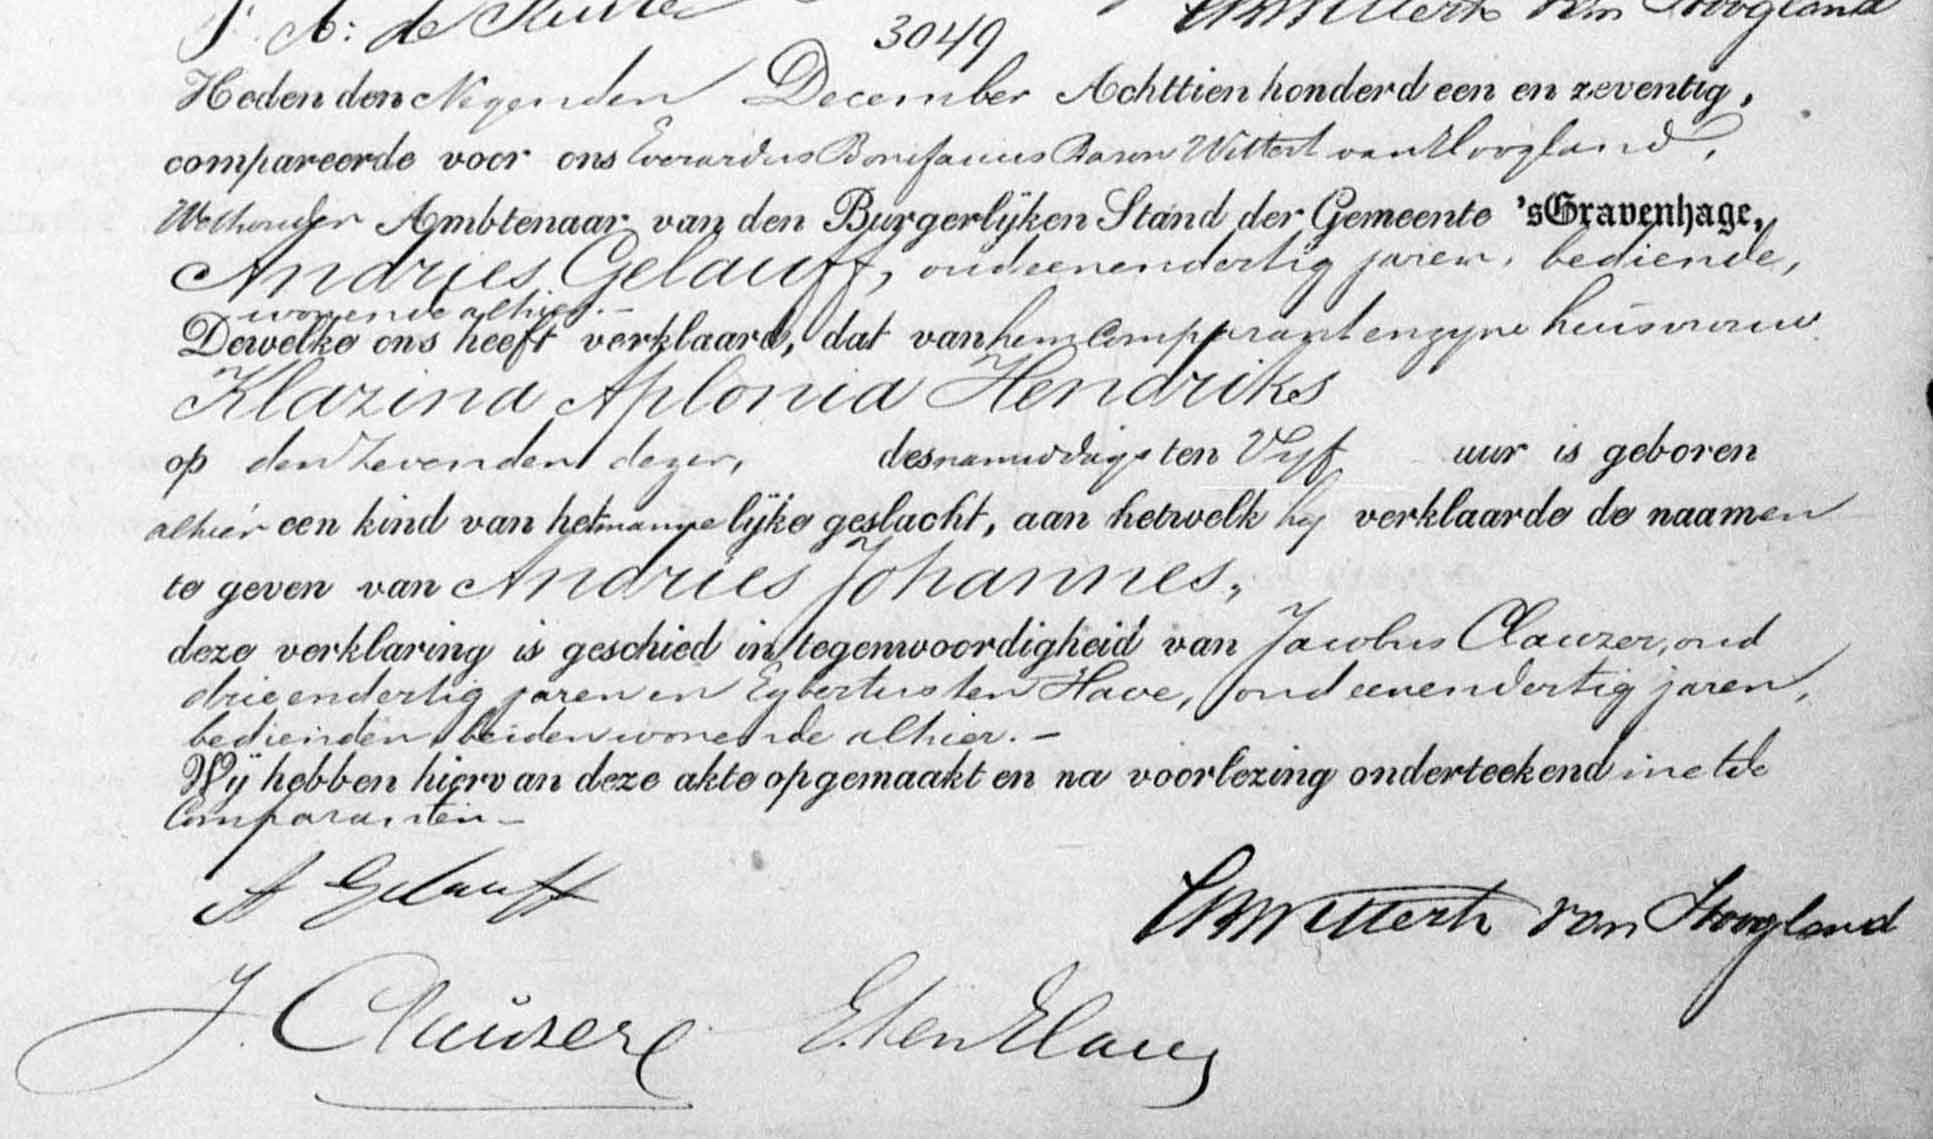 F. A. de
van Hoogland
3049
Heden den Negenden December Achttien honderd een en zeventig,
compareerde voor ons Everardus Bonifacius Baron Wittert van Hoogland,
Wethouder Ambtenaar van den Burgerlijken Stand der Gemeente 'sGravenhage,
Andries Gelauff, oud eenendertig jaren, bediende,
wonende alhier.-
Dewelke ons heeft verklaard, dat van hem Comparant en zyne huisvrouw
Klazina Aplonia Hendriks
op den Zevenden dezer, des namiddags ten Vyf uur is geboren
alhier een kind van het mannelijke geslacht, aan hetwelk hy verklaarde de naamen
te geven van Andries Johannes,
deze verklaring is geschied in tegenwoordigheid van Jacobus Clauzer, oud
drieendertig jaren en Egbertus ten Have, oud eenendertig jaren,
bedienden, beiden wonende alhier.-
Wij hebben hiervan deze akte opgemaakt en na voorlezing onderteekend met de
Comparanten-
A Gelauff
EBWittert van Hoogland
J. Clauser
E. ten Have